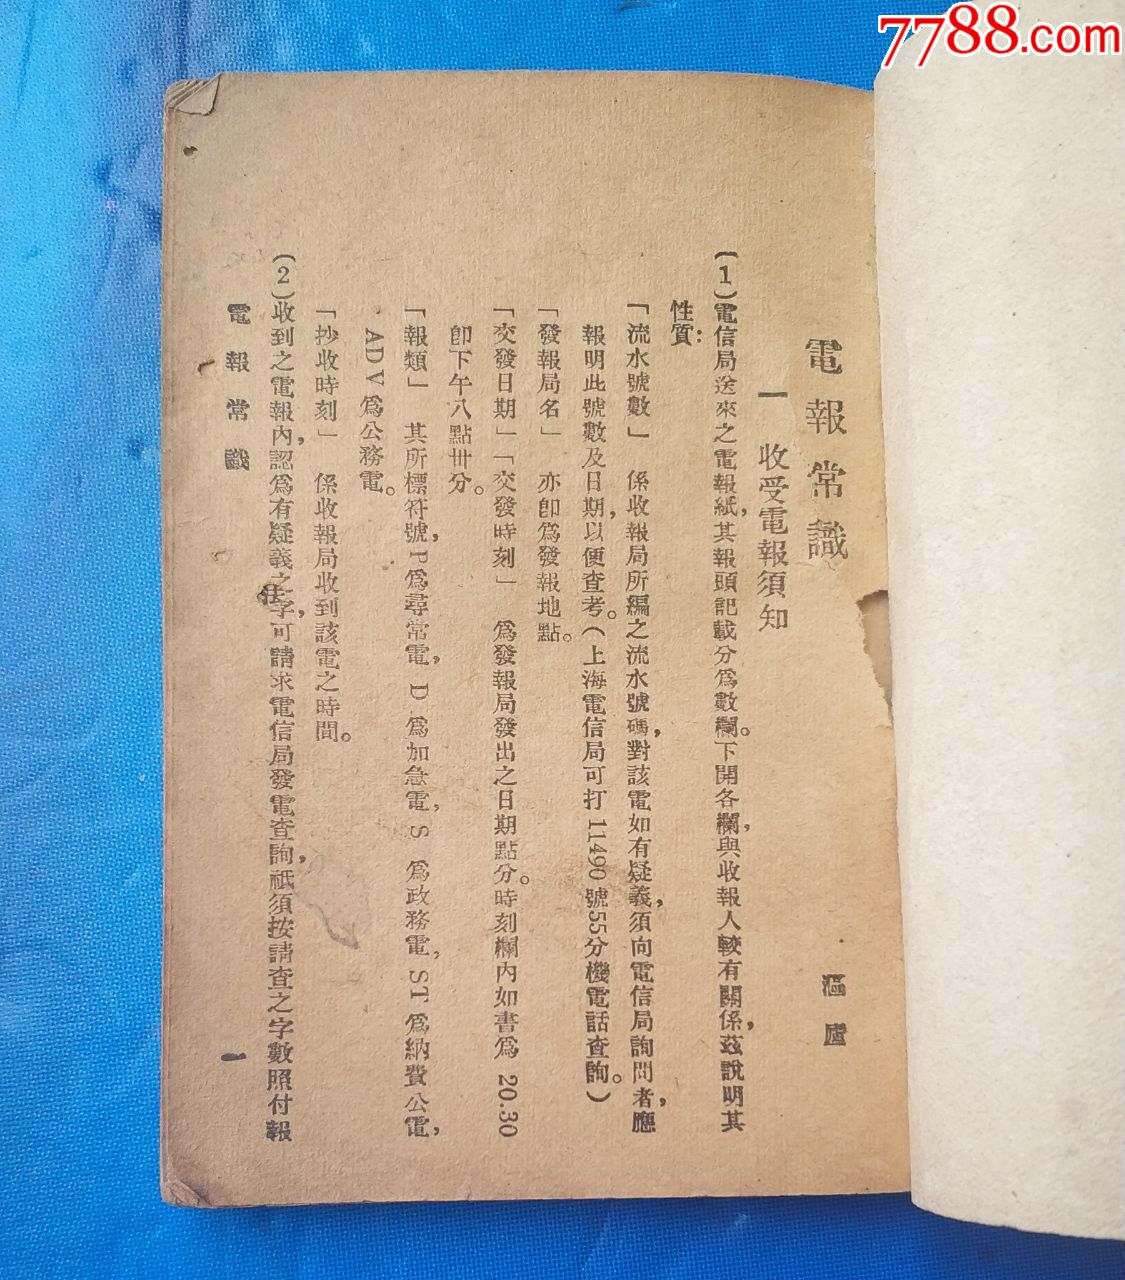 7788.com
電報常識
漚廬
一 收受電報須知
(1)電信局送來之電報紙，其報頭記載分爲數欄。下開各欄，與收報人較有關係，茲說明其
性質：
「流水號數」 係收報局所編之流水號碼，對該電如有疑義，須向電信局詢問者，應
報明此號數及日期，以便查考。(上海電信局可打11490號55分機電話查詢。)
「發報局名」 亦卽爲發報地點。
「交發日期」「交發時刻」 爲發報局發出之日期點分。時刻欄內如書爲 20.30
卽下午八點卅分。
「報類」 其所標符號，P爲尋常電，D爲加急電，S 爲政務電，ST爲納費公電，
ADV爲公務電。
「抄收時刻」 係收報局收到該電之時間。
(2)收到之電報內，認爲有疑義之字，可請求電信局發電查詢，祗須按請查之字數照付報
電報常識
一